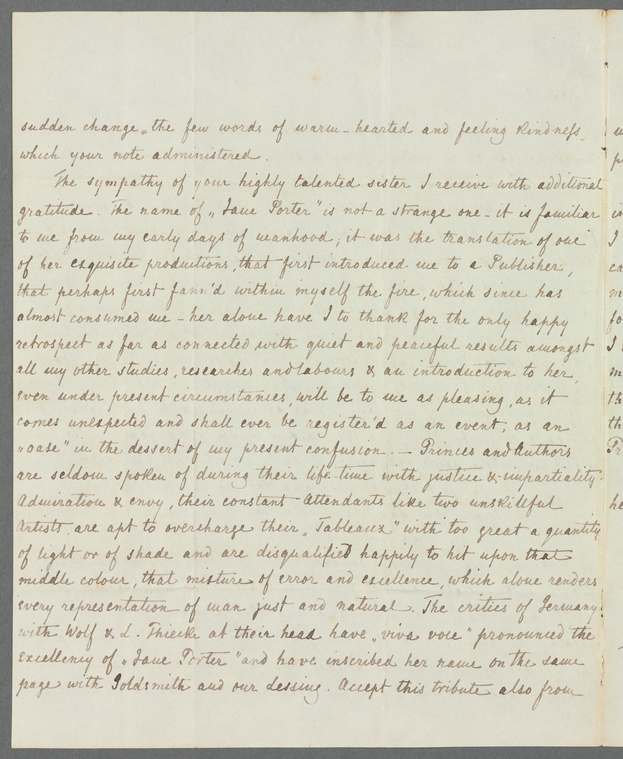 sudden change = the few words of warm-hearted and feeling kindness
which your note administered.
The sympathy of your highly talented sister I receive with additional
gratitude. The name of „Jane Porter" is not a strange one - it is familiar
to me from my early days of manhood; it was the translation of one
of her exquisite productions, that first introduced me to a Publisher,
that perhaps first fann'd within myself the fire, which since has
almost consumed me - her alone have I to thank for the only happy
retrospect as far as connected with quiet and peaceful results amongst
all my other studies, researches and labours & an introduction to her,
even under present circumstances, will be to me as pleasing, as it
comes unexpected and shall ever be register'd as an event, as an
„oase" in the dessert of my present confusion. — Princes and Authors
are seldom spoken of during their life-time with justice & impartiality.
Admiration & envy, their constant Attendants like two unskillful
Artists are apt to overcharge their „Tableaux" with too great a quantity
of light or of shade and are disqualified happily to hit upon that
middle colour, that misture of error and excellence, which alone renders
every representation of man just and natural. The critics of Germany
with Wolf & L. Thiecke at their head have „viva voce" pronounced the
excellency of „Jane Porter" and have inscribed her name on the same
page with Goldsmith and our Lessing. Accept this tribute also from